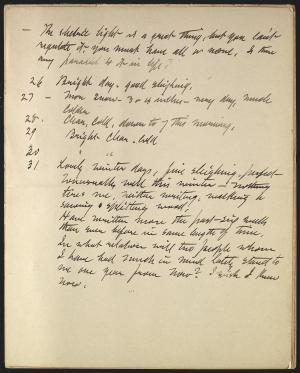 - The electric light is a great thing, but you can't
regulate it, you must have all or none. Is there
any parallel to it in life?
26 Bright day - good sleighing.
27 - More snow - 3 or 4 inches - day, much
colder
28. Clear, cold, down to 7 this morning.
29 Bright clear, cold
30 " "
31 Lovely winter days, fine sleighing, perfect
Unusually well this winter - nothing
tires me, neither writing, walking or
sawing & splitting wood.
Have written more the past six weeks
than ever before in same length of time.
In what relation will two people whom
I have had much in mind lately stand to
me one year from now? I wish I knew
now.